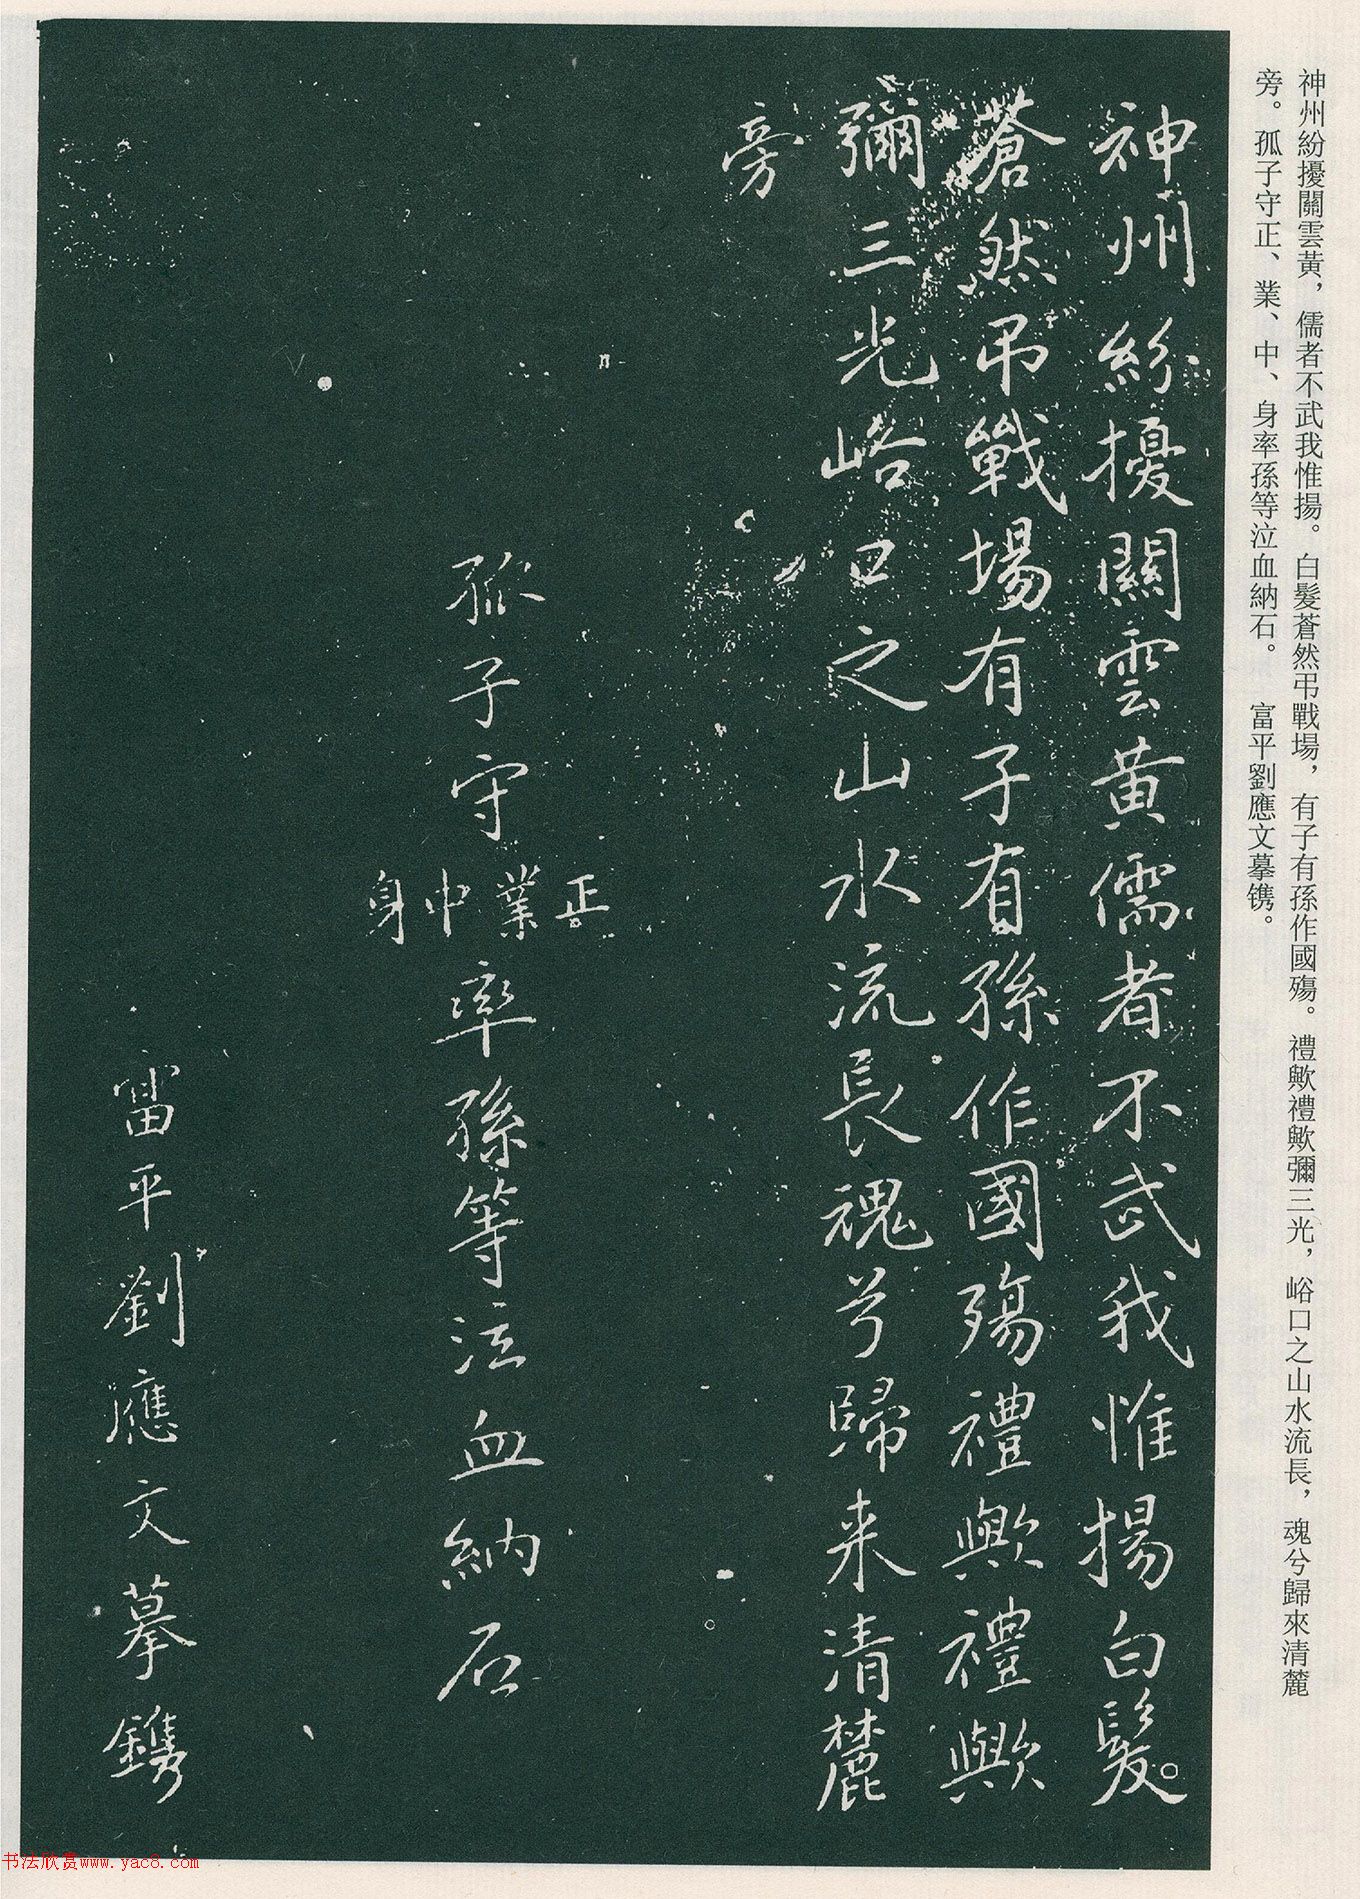 神州紛擾關雲黃，儒者不武我惟揚。白髮蒼然弔戰場，有子有孫作國殤。禮歟禮歟彌三光，峪口之山水流長，魂兮歸來清麓
旁。孤子守正、業、中、身率孫等泣血納石。　富平劉應文摹镌。
神州紛擾關雲黃儒者不武我惟揚白髮
蒼然弔戰場有子有孫作國殤禮歟禮歟
彌三光峪口之山水流長魂兮歸来清麓
旁
孤子守正業中身率孫等泣血納石
富平劉應文摹鐫
书法欣赏www.yac8.com